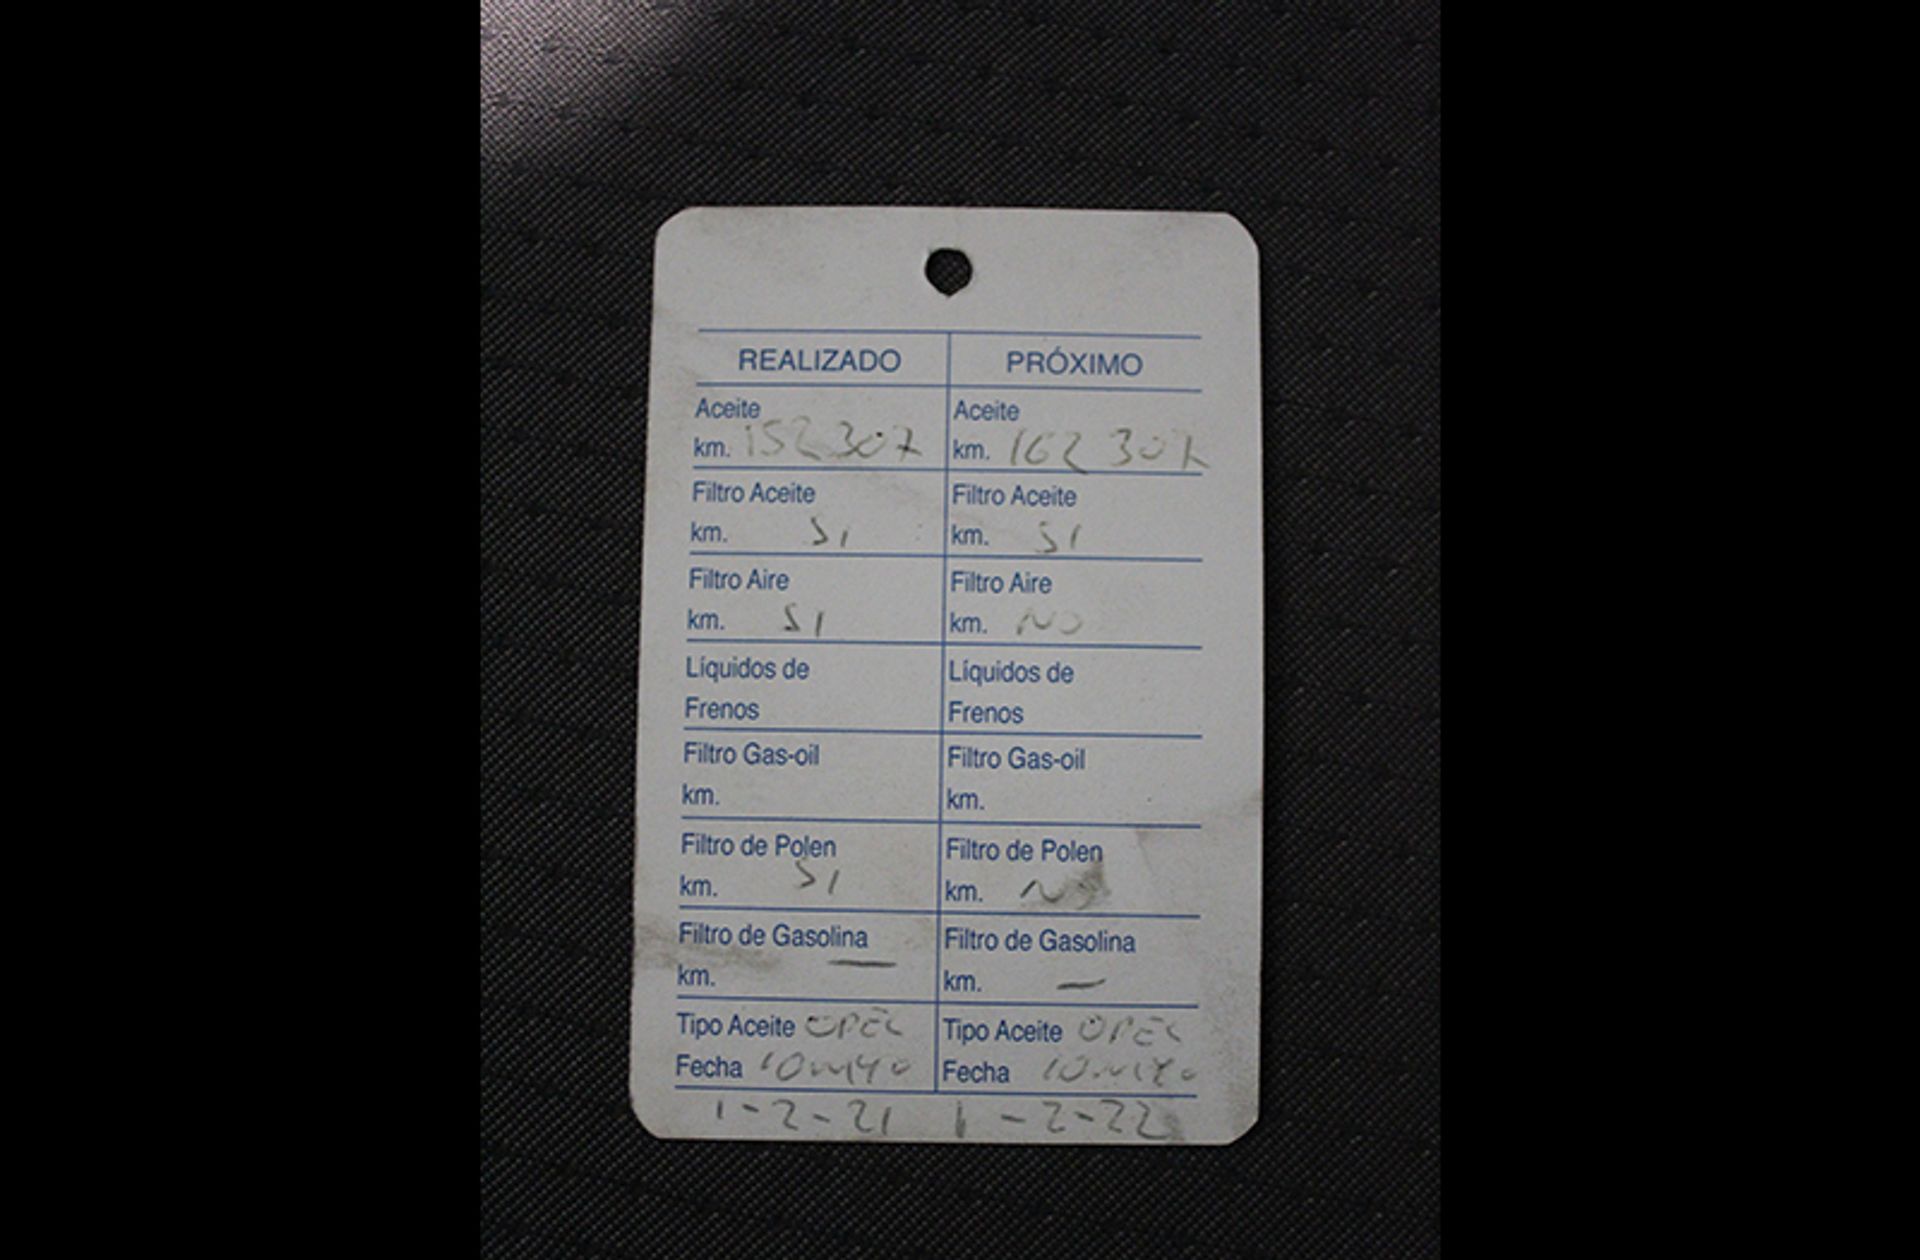 REALIZADO PRÓXIMO
Aceite Aceite
km. 152 307 km. 162 307
Filtro Aceite Filtro Aceite
km. SI km. SI
Filtro Aire Filtro Aire
km. SI km. NO
Líquidos de Líquidos de
Frenos Frenos
Filtro Gas-oil Filtro Gas-oil
km. km.
Filtro de Polen Filtro de Polen
km. SI km. NO
Filtro de Gasolina — Filtro de Gasolina
km. km. —
Tipo Aceite OPEL Tipo Aceite OPEL
Fecha 10W40 Fecha 10W40
1-2-21 1-2-22